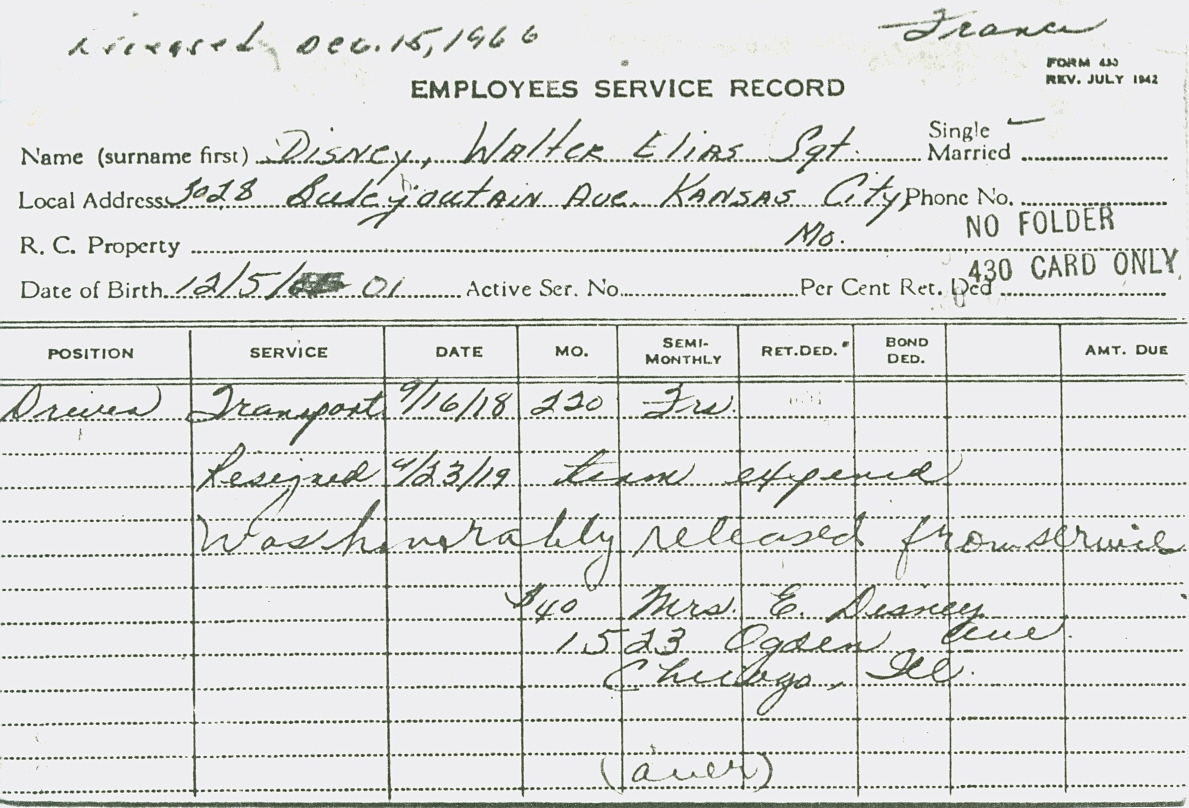 Deceased Dec. 15, 1966
France
FORM 430
REV. JULY 1942
EMPLOYEES SERVICE RECORD
Name (surname first) Disney, Walter Elias Sgt.
Single
Married
Local Address 3028 Ave. Kansas City Phone No.
NO FOLDER
R. C. Property Mo.
430 CARD ONLY
Date of Birth 12/5/ 01 Active Ser. No. Per Cent Ret. Ded
POSITION SERVICE DATE MO. SEMI-MONTHLY RET.DED. BOND DED. AMT. DUE
Driver Transport 9/16/18 220 Frs.
Resigned 4/23/19 term expired
Was honorably released from service
$40 Mrs. E. Disney
1523 Ogden Ave.
Chicago, Ill.
(over)